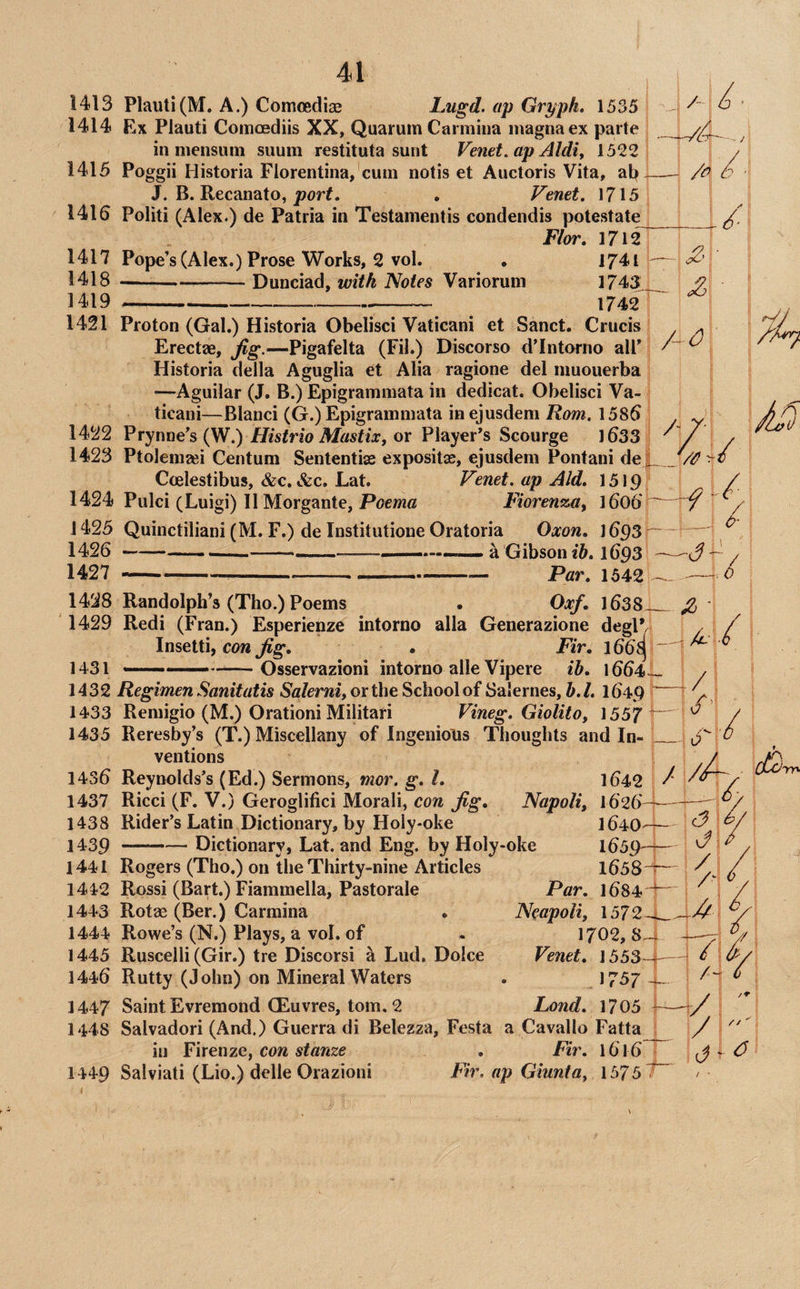 41
1413 Plauti (M. A.) Comœdiæ Lugd. ap Gryph. 1535
1414 Ex Plauti Comœdiis XX, Quarum Carmina magna ex parte
in mensum suum restituta sunt Venet. ap Aldi, 1522
1415 Poggii Historia Florentina, cum notis et Auctoris Vita, ab
J. B. Recanato, port. . Venet. 1715
1416 Politi (Alex.) de Patria in Testamentis condendis potestate
Flor. 1712
1417 Pope's (Alex.) Prose Works, 2 vol. . 1741
1418 ———— Dunciad, with Notes Variorum 1743
1419 ———————— 1742
1421 Proton (Gal.) Historia Obelisci Vaticani et Sanct. Crucis
Erectæ, fig.—Pigafelta (Fil.) Discorso d'Intorno all'
Historia della Aguglia et Alia ragione del muouerba
—Aguilar (J. B.) Epigrammata in dedicat. Obelisci Va-
ticani—Blanci (G.) Epigrammata in ejusdem Rom. 1586
1422 Prynne's (W.) Histrio Mastix, or Player's Scourge 1633
1423 Ptolemæi Centum Sententiæ expositæ, ejusdem Pontani de
Cœlestibus, &c. &c. Lat. Venet. ap Ald. 1519
1424 Pulci (Luigi) Il Morgante, Poema Fiorenza, 1606
1425 Quinctiliani (M. F.) de Institutione Oratoria Oxon. 1693
1426 ———————— à Gibson ib. 1693
1427 ———————— Par. 1542
1428 Randolph's (Tho.) Poems . Oxf. 1638
1429 Redi (Fran.) Esperienze intorno alla Generazione degl'
Insetti, con fig. . Fir. 1668
1431 ———— Osservazioni intorno alle Vipere ib. 1664
1432 Regimen Sanitatis Salerni, or the School of Salernes, b. l. 1649
1433 Remigio (M.) Orationi Militari Vineg. Giolito, 1557
1435 Reresby's (T.) Miscellany of Ingenious Thoughts and In-
ventions
1436 Reynolds's (Ed.) Sermons, mor. g. l. 1642
1437 Ricci (F. V.) Geroglifici Morali, con fig. Napoli, 1626
1438 Rider's Latin Dictionary, by Holy-oke 1640
1439 ——— Dictionary, Lat. and Eng. by Holy-oke 1659
1441 Rogers (Tho.) on the Thirty-nine Articles 1658
1442 Rossi (Bart.) Fiammella, Pastorale Par. 1684
1443 Rotæ (Ber.) Carmina . Neapoli, 1572
1444 Rowe's (N.) Plays, a vol. of - 1702, 8
1445 Ruscelli (Gir.) tre Discorsi à Lud. Dolce Venet. 1553
1446 Rutty (John) on Mineral Waters . 1757
1447 Saint Evremond Œuvres, tom. 2 Lond. 1705
1448 Salvadori (And.) Guerra di Belezza, Festa a Cavallo Fatta
in Firenze, con stanze . Fir. 1616
1449 Salviati (Lio.) delle Orazioni Fir. ap Giunta, 1575